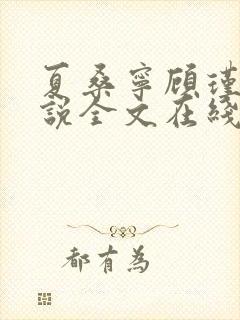 夏桑寧顧瑾
說全文在綫
都有為